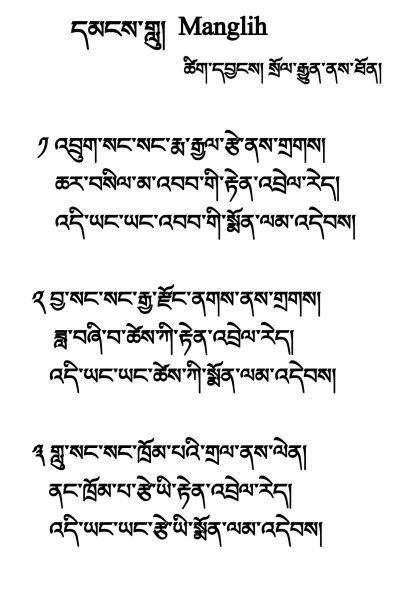 དམངས་གླུ། Manglih
ཚིག་དབྱངས། སྲོལ་རྒྱུན་ནས་ཐོན།
༡ འབྲུག་སང་སང་རྨ་རྒྱལ་རྩེ་ནས་གྲགས།
ཆར་བསིལ་མ་འབབ་གི་རྟེན་འབྲེལ་རེད།
འདི་ཡང་ཡང་འབབ་གི་སྨོན་ལམ་འདེབས།
༢ བྱ་སང་སང་རྒྱ་རྫོང་ནགས་ནས་གྲགས།
ཟླ་བཞི་བ་ཚེས་ཀི་རྟེན་འབྲེལ་རེད།
འདི་ཡང་ཡང་ཚེས་ཀི་སྨོན་ལམ་འདེབས།
༣ གླུ་སང་སང་ཁྲོམ་པའི་གྲལ་ནས་ལེན།
ནང་ཁྲོམ་པ་རྩེ་ཡི་རྟེན་འབྲེལ་རེད།
འདི་ཡང་ཡང་རྩེ་ཡི་སྨོན་ལམ་འདེབས།